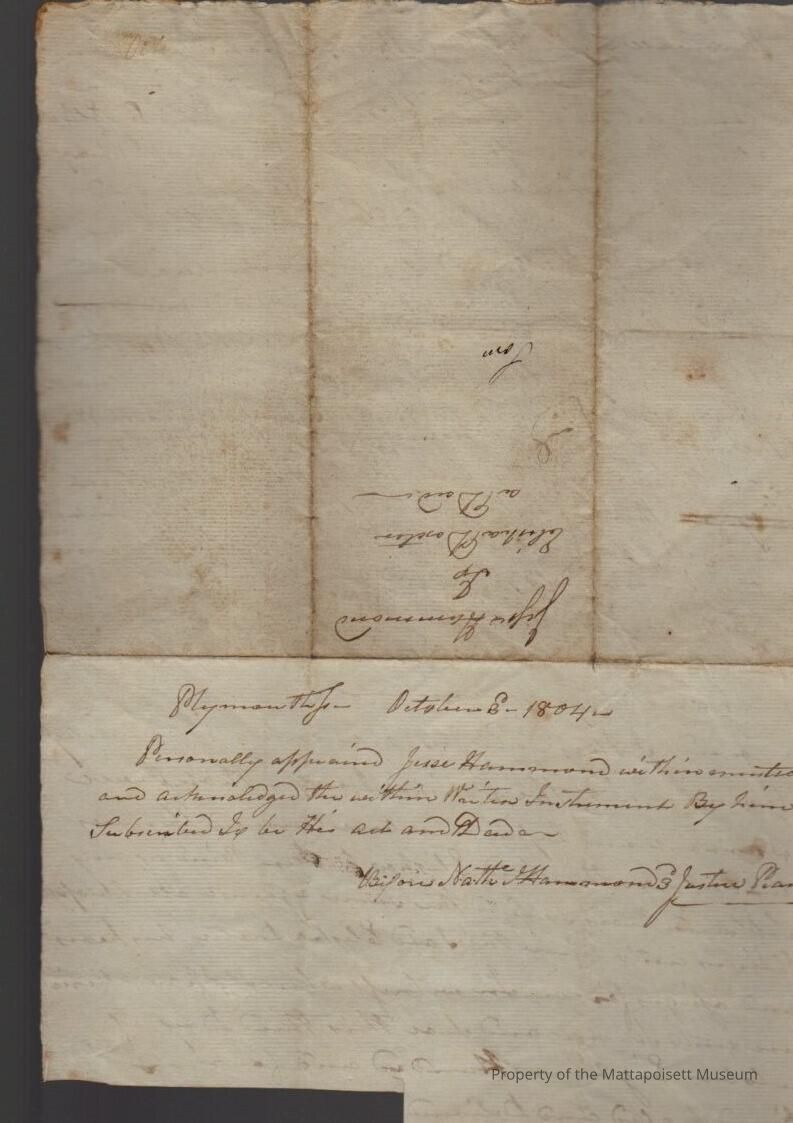 Jesse Hammond
To
Elisha Dexter
a Deed
Plymouth Ss October 8 1804
Personally appeared Jesse Hammond within
and acknoledged the within Writen Instrument By him
Subscribed To be His act and Deed
Before Nathl Hammond Justice Pea
Property of the Mattapoisett Museum